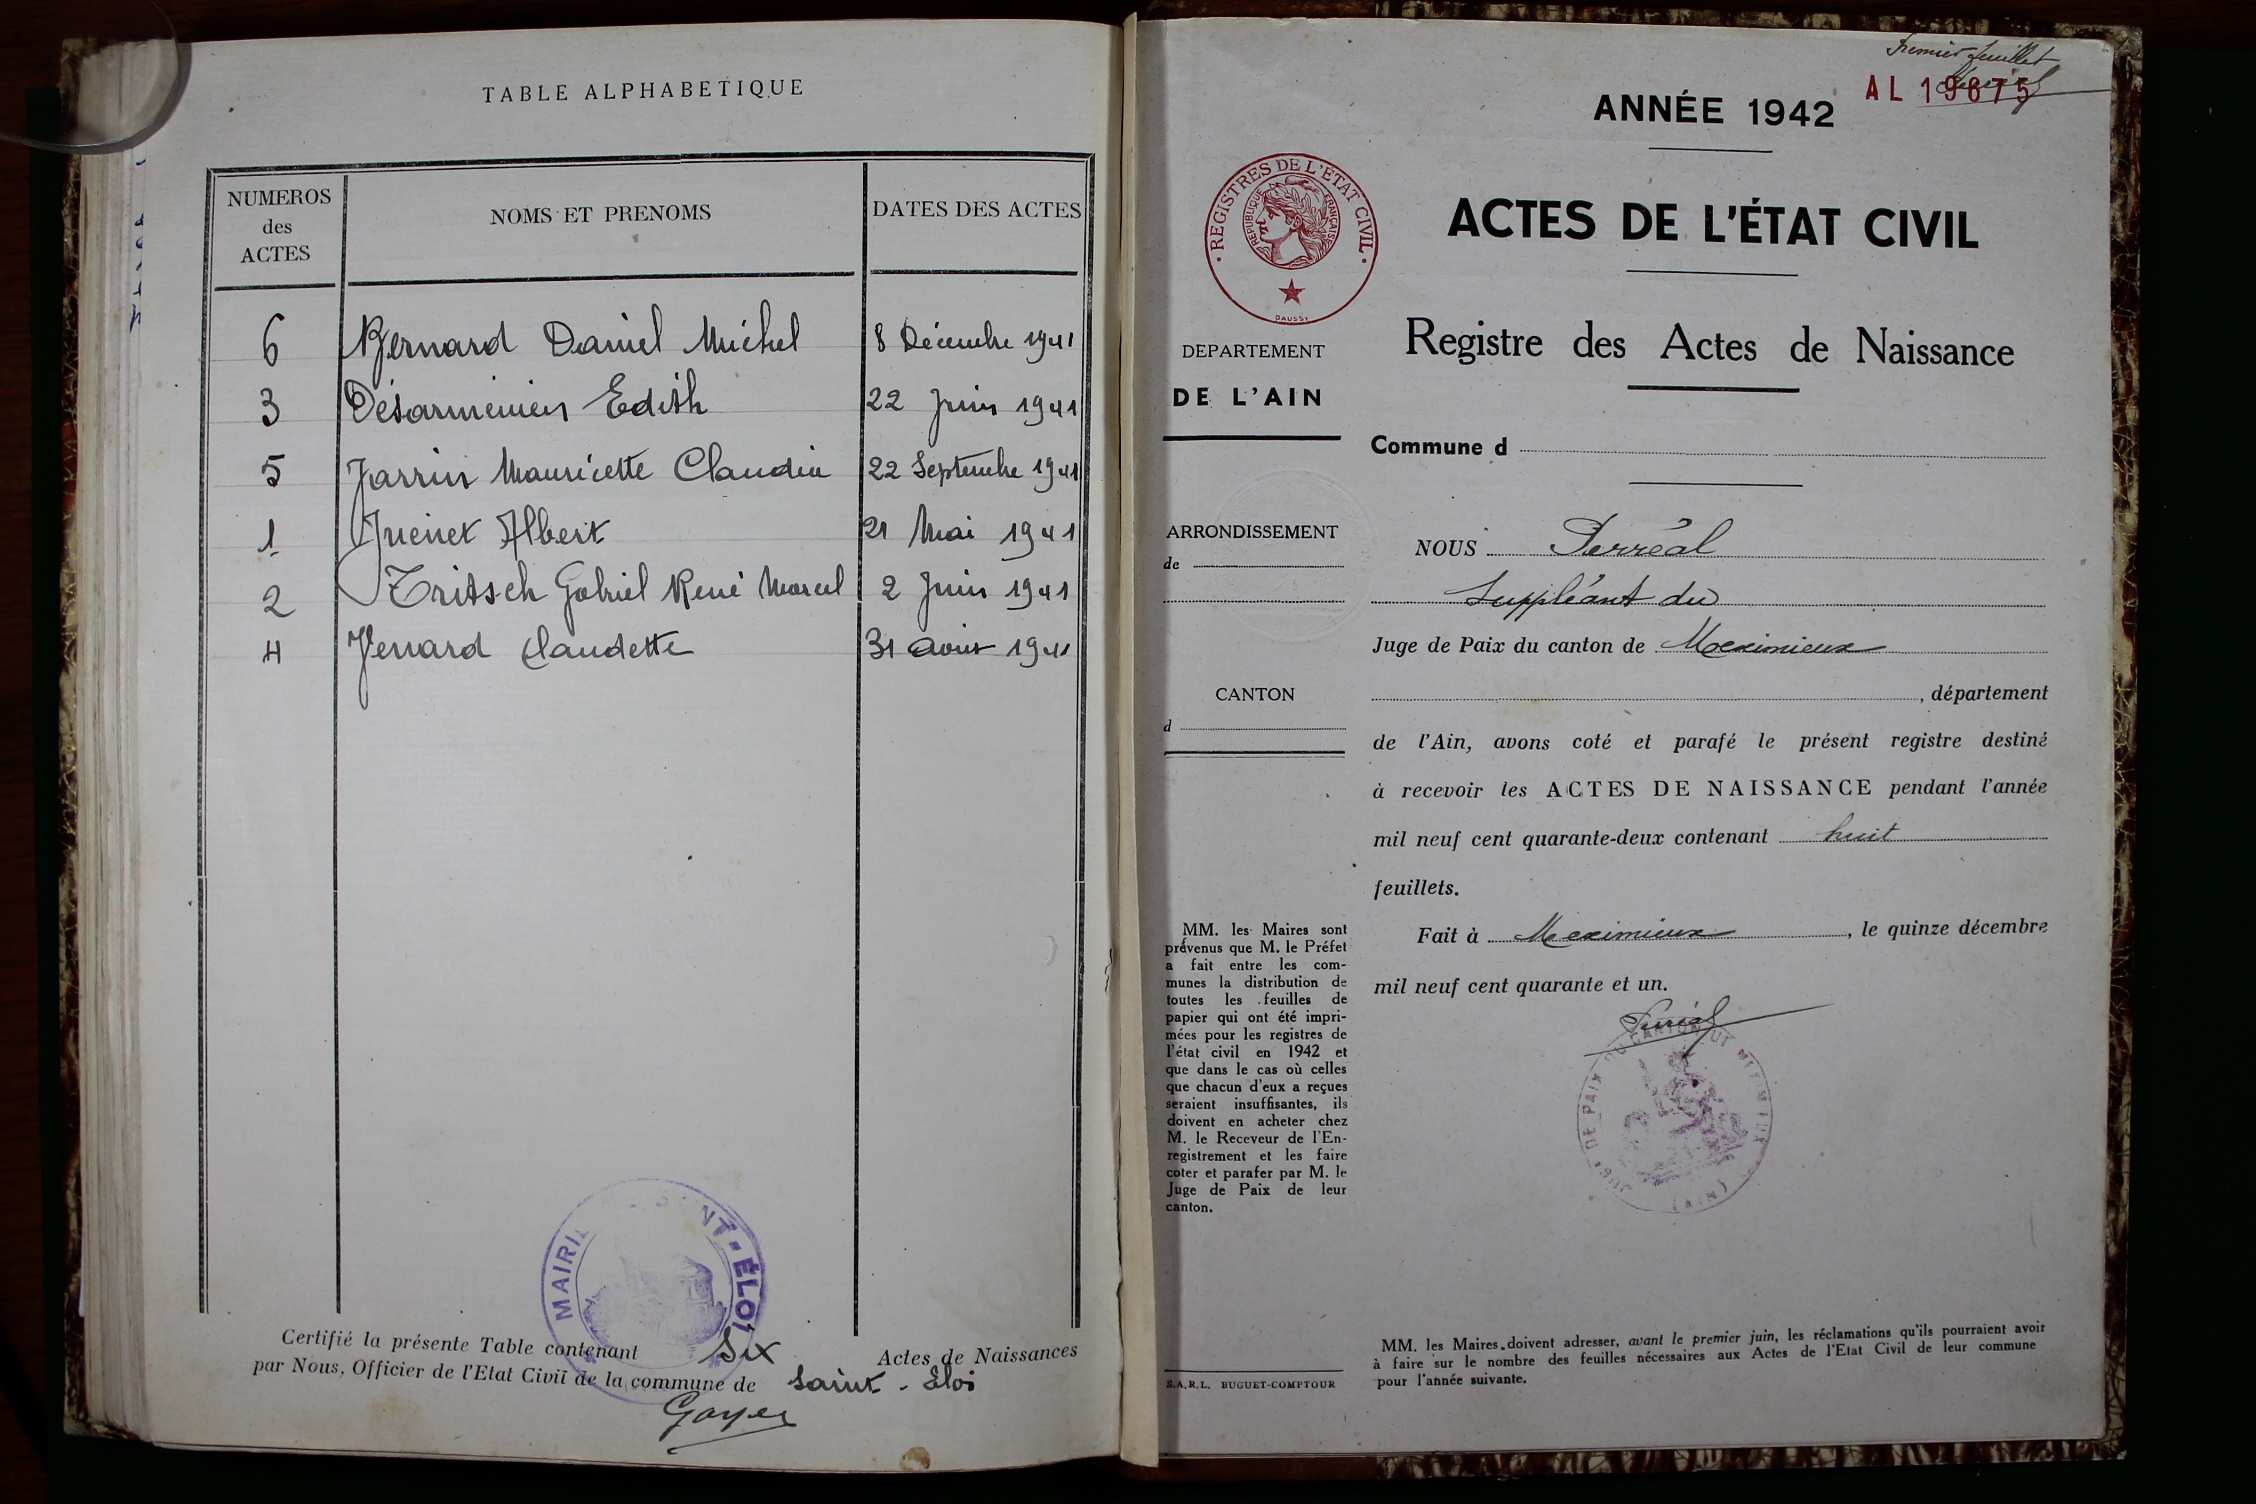 TABLE ALPHABETIQUE
NUMEROS
des
ACTES
NOMS ET PRENOMS
DATES DES ACTES
6 Bernard Daniel Michel 8 Décembre 1941
3 Désarménien Edith 22 Juin 1941
5 Jarrin Mauricette Claudia 22 Septembre 1941
1 Juenet Albert 21 Mai 1941
2 Tritsch Gabriel René Marcel 2 Juin 1941
4 Venard Claudette 31 Aout 1941
MAIRIE NT-ÉLOI
Certifié la présente Table contenant Six Actes de Naissances
par Nous, Officier de l'Etat Civil de la commune de Saint-Eloi
Goyer
Premier feuillet
AL 19675
ANNÉE 1942
ACTES DE L'ÉTAT CIVIL
REGISTRES DE L'ETAT CIVIL
REPUBLIQUE FRANÇAISE
DAUSSY
Registre des Actes de Naissance
DEPARTEMENT
DE L'AIN
Commune d
ARRONDISSEMENT
de
NOUS Perréal
Suppléant du
Juge de Paix du canton de Meximieux
CANTON
d
, département
de l'Ain, avons coté et parafé le présent registre destiné
à recevoir les ACTES DE NAISSANCE pendant l'année
mil neuf cent quarante-deux contenant huit
feuillets.
Fait à Meximieux, le quinze décembre
mil neuf cent quarante et un.
JUGE DE PAIX DU CANTON DE MEXIMIEUX
(AIN)
MM. les Maires sont
prévenus que M. le Préfet
a fait entre les com-
munes la distribution de
toutes les feuilles de
papier qui ont été impri-
mées pour les registres de
l'état civil en 1942 et
que dans le cas où celles
que chacun d'eux a reçues
seraient insuffisantes, ils
doivent en acheter chez
M. le Receveur de l'En-
registrement et les faire
coter et parafer par M. le
Juge de Paix de leur
canton.
S.A.R.L. BUGUET-COMPTOUR
MM. les Maires doivent adresser, avant le premier juin, les réclamations qu'ils pourraient avoir
à faire sur le nombre des feuilles nécessaires aux Actes de l'Etat Civil de leur commune
pour l'année suivante.